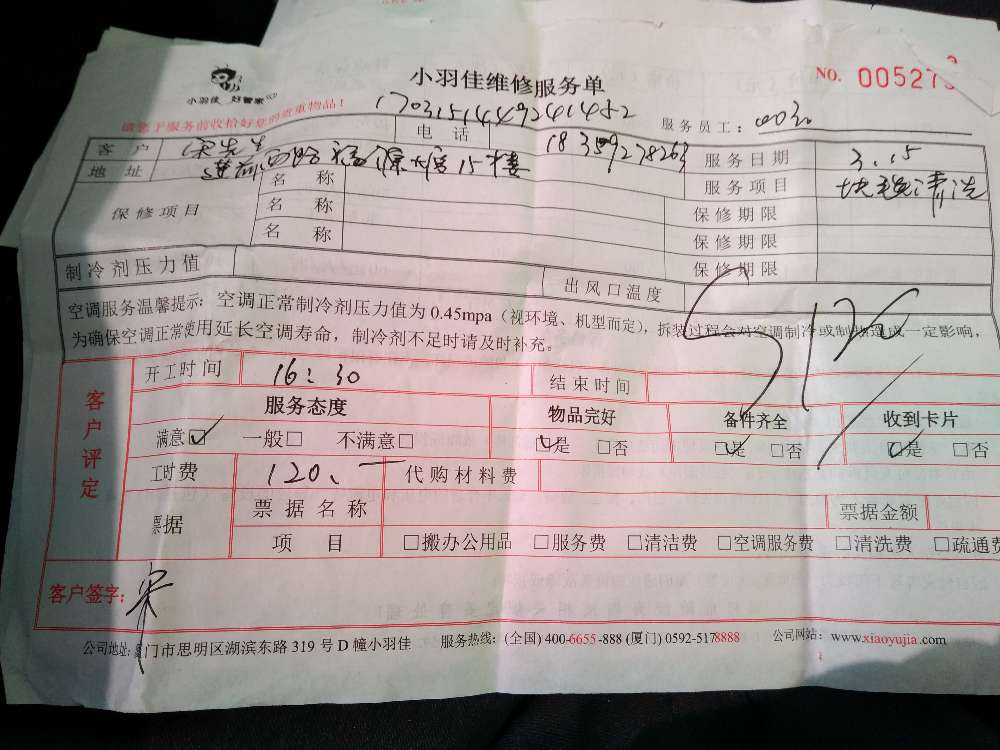 小羽佳 好管家
小羽佳维修服务单
NO. 00527
请您于服务前收拾好您的贵重物品!
17031514492401452
服务员工:
客户 宋先生 电话 18359278263 服务日期 3.15
地址 15楼 服务项目 清洗
保修项目 名称 保修期限
名称 保修期限
名称 保修期限
制冷剂压力值 出风口温度
空调服务温馨提示: 空调正常制冷剂压力值为0.45mpa(视环境、机型而定),拆装过程会对空调制冷或制热造成一定影响,
为确保空调正常使用延长空调寿命,制冷剂不足时请及时补充。
客户评定
开工时间 16:30 结束时间
服务态度 物品完好 备件齐全 收到卡片
满意☑ 一般□ 不满意□ ☑是 □否 ☑是 □否 ☑是 □否
工时费 120、一 代购材料费
票据 票据名称 票据金额
项目 □搬办公用品 □服务费 □清洁费 □空调服务费 □清洗费 □疏通费
客户签字: 宋
公司地址:厦门市思明区湖滨东路319号D幢小羽佳 服务热线:(全国)400-6655-888(厦门)0592-5178888 公司网站:www.xiaoyujia.com